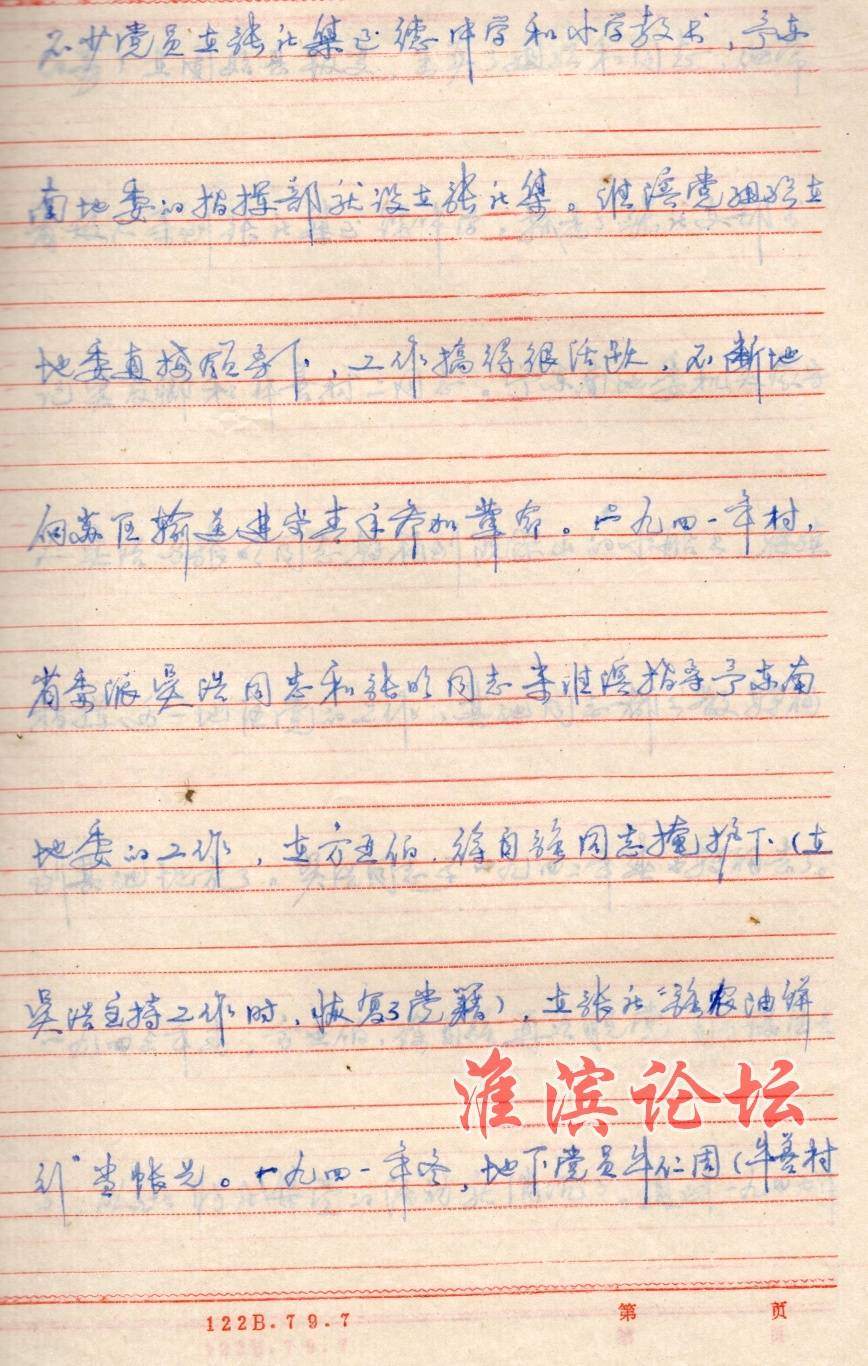 不少党员在张北集正德中学和小学教书，予东
南地委的指挥部就设在张北集。淮滨党组织在
地委直接领导下，工作搞得很活跃，不断地
向苏区输送进步青年参加革命。一九四一年村，
省委派吴浩同志和张明同志来淮滨指导予东南
地委的工作，在方五伯，徐自强同志掩护下（在
吴浩主持工作时，恢复了党籍），在张北“农油饼
行”当帐先。一九四一年冬，地下党员牛仁周（牛善村
淮滨论坛
122B.79.7 第 页